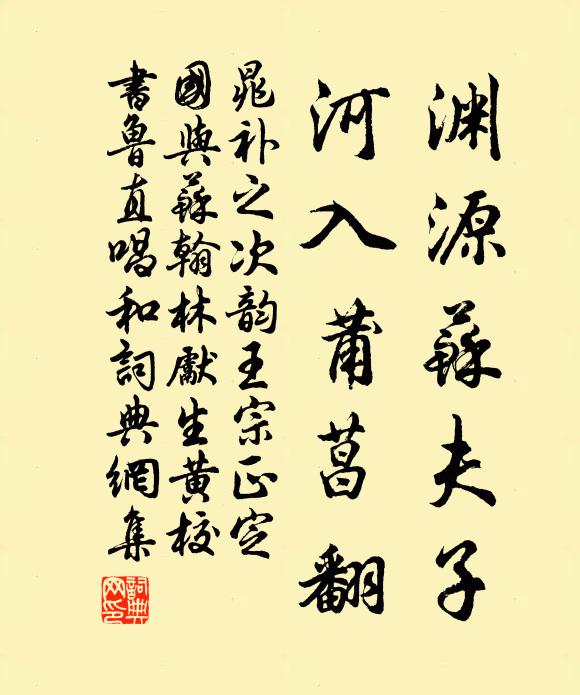 渊源蘇夫子
河入莆菖翻
晁补之次韵王宗正定
國與蘇翰林獻生黄校
書魯直唱和詞典網集
詞典网印